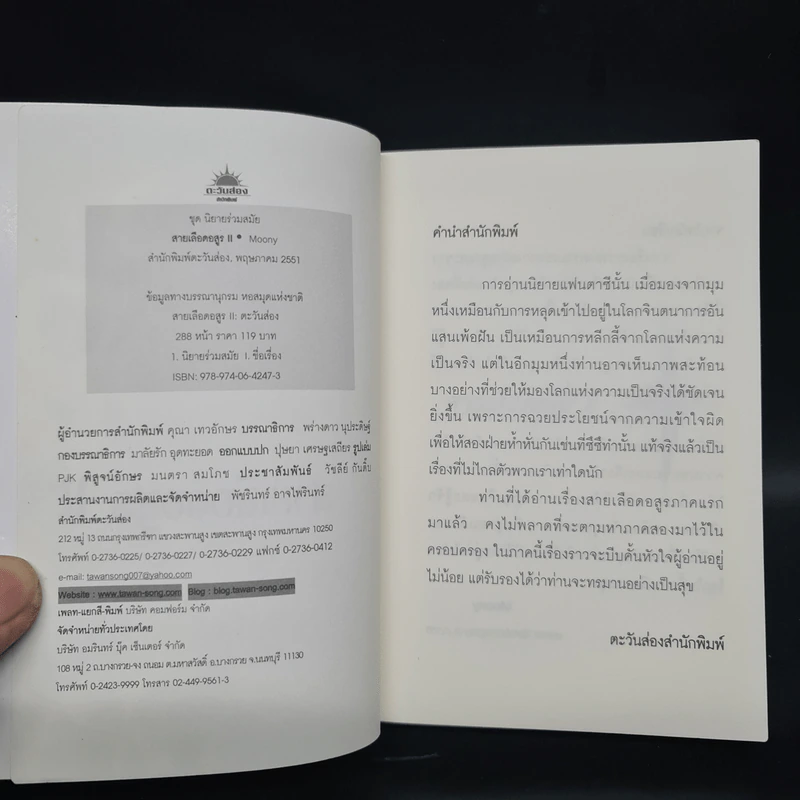 ตะวันส่อง
สำนักพิมพ์
ชุด นิยายร่วมสมัย
สายเลือดอสูร II • Moony
สำนักพิมพ์ตะวันส่อง, พฤษภาคม 2551
ข้อมูลทางบรรณานุกรม หอสมุดแห่งชาติ
สายเลือดอสูร II: ตะวันส่อง
288 หน้า ราคา 119 บาท
1. นิยายร่วมสมัย I. ชื่อเรื่อง
ISBN: 978-974-06-4247-3
ผู้อำนวยการสำนักพิมพ์ คุณา เทวอักษร บรรณาธิการ พร่างดาว นุประดิษฐ์
กองบรรณาธิการ มาลัยรัก อุตทะยอด ออกแบบปก ปุษยา เศรษฐเสถียร รูปเล่ม
PJK พิสูจน์อักษร มนตรา สมโภช ประชาสัมพันธ์ วัชลีย์ กันตั๊บ
ประสานงานการผลิตและจัดจำหน่าย พัชรินทร์ อาจไพรินทร์
สำนักพิมพ์ตะวันส่อง
212 หมู่ 13 ถนนกรุงเทพกรีฑา แขวงสะพานสูง เขตสะพานสูง กรุงเทพมหานคร 10250
โทรศัพท์ 0-2736-0225/ 0-2736-0227/ 0-2736-0229 แฟกซ์ 0-2736-0412
e-mail: tawansong007@yahoo.com
Website : www.tawan-song.com Blog : blog.tawan-song.com
เพลท-แยกสี-พิมพ์ บริษัท คอมฟอร์ม จำกัด
จัดจำหน่ายทั่วประเทศโดย
บริษัท อมรินทร์ บุ๊ค เซ็นเตอร์ จำกัด
108 หมู่ 2 ถ.บางกรวย-จง ถนอม ต.มหาสวัสดิ์ อ.บางกรวย จ.นนทบุรี 11130
โทรศัพท์ 0-2423-9999 โทรสาร 02-449-9561-3
คำนำสำนักพิมพ์
การอ่านนิยายแฟนตาซีนั้น เมื่อมองจากมุม
หนึ่งเหมือนกับการหลุดเข้าไปอยู่ในโลกจินตนาการอัน
แสนเพ้อฝัน เป็นเหมือนการหลีกลี้จากโลกแห่งความ
เป็นจริง แต่ในอีกมุมหนึ่งท่านอาจเห็นภาพสะท้อน
บางอย่างที่ช่วยให้มองโลกแห่งความเป็นจริงได้ชัดเจน
ยิ่งขึ้น เพราะการฉวยประโยชน์จากความเข้าใจผิด
เพื่อให้สองฝ่ายห้ำหั่นกันเช่นที่ซีซีทำนั้น แท้จริงแล้วเป็น
เรื่องที่ไม่ไกลตัวพวกเราเท่าใดนัก
ท่านที่ได้อ่านเรื่องสายเลือดอสูรภาคแรก
มาแล้ว คงไม่พลาดที่จะตามหาภาคสองมาไว้ใน
ครอบครอง ในภาคนี้เรื่องราวจะบีบคั้นหัวใจผู้อ่านอยู่
ไม่น้อย แต่รับรองได้ว่าท่านจะทรมานอย่างเป็นสุข
ตะวันส่องสำนักพิมพ์